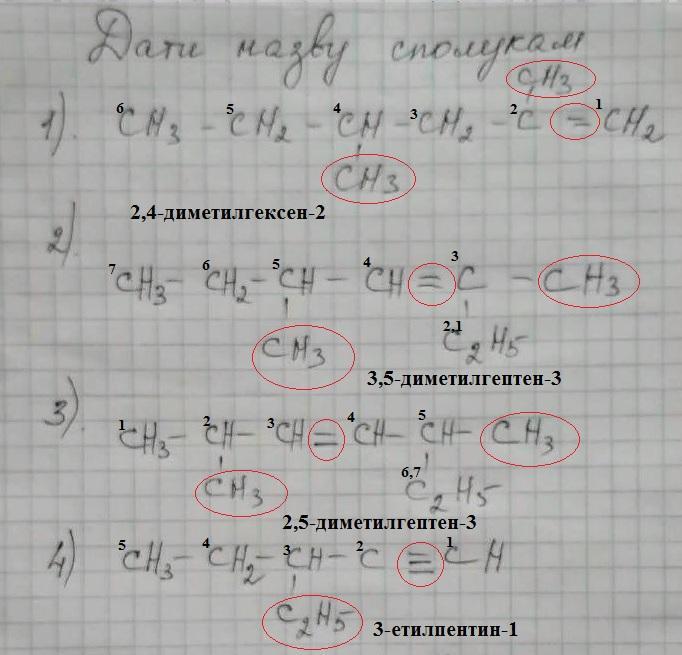 Дати назву сполукам
CH3
1). 6 CH3 - 5 CH2 - 4 CH - 3 CH2 - 2 C = 1 CH2
CH3
2,4-диметилгексен-2
2)
7 CH3 - 6 CH2 - 5 CH - 4 CH = 3 C - CH3
CH3 2,1 C2H5
3,5-диметилгептен-3
3).
1 CH3 - 2 CH - 3 CH = 4 CH - 5 CH - CH3
CH3 6,7 C2H5
2,5-диметилгептен-3
4) 5 CH3 - 4 CH2 - 3 CH - 2 C ≡ 1 CH
C2H5
3-етилпентин-1